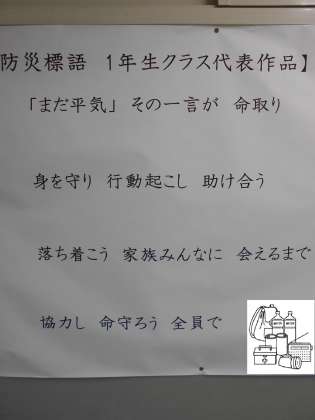 防災標語 1年生クラス代表作品】
「まだ平気」 その一言が 命取り
身を守り 行動起こし 助け合う
落ち着こう 家族みんなに 会えるまで
協力し 命守ろう 全員で